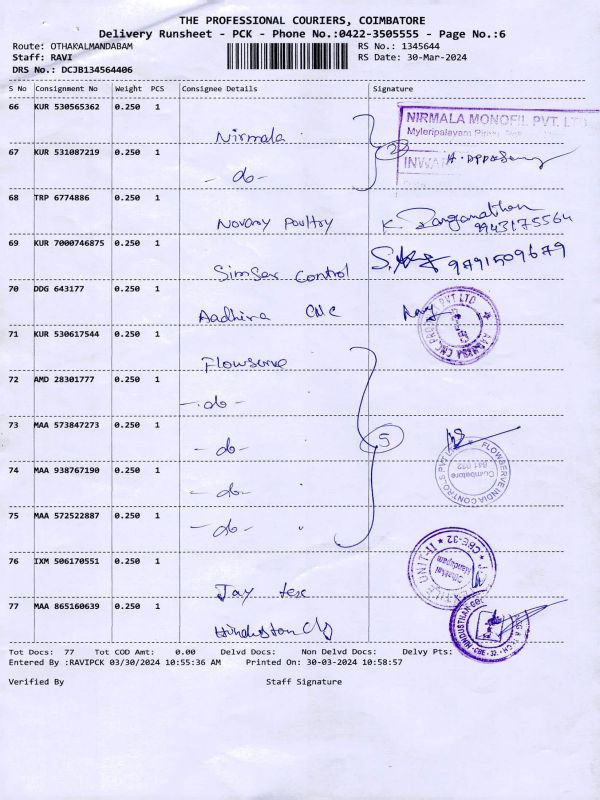 THE PROFESSIONAL COURIERS, COIMBATORE
Delivery Runsheet - PCK - Phone No.:0422-3505555 - Page No.:6
Route: OTHAKALMANDABAM RS No.: 1345644
Staff: RAVI RS Date: 30-Mar-2024
DRS No.: DCJB134564406
S No Consignment No Weight PCS Consignee Details Signature
66 KUR 530565362 0.250 1
Nirmala
NIRMALA MONOFIL PVT. LTD
Myleripalayam
67 KUR 531087219 0.250 1
- do -
2
INWA
68 TRP 6774886 0.250 1
Novany Poultry K. Ranganathan
9943175564
69 KUR 7000746875 0.250 1
SimSer Control 9791509679
70 DDG 643177 0.250 1
Aadhira CNC
71 KUR 530617544 0.250 1
Flowserve
72 AMD 28301777 0.250 1
- do -
73 MAA 573847273 0.250 1
- do -
5
FLOWSERVE INDIA CONTROLS PVT
Coimbatore
641 032
74 MAA 938767190 0.250 1
- do -
75 MAA 572522887 0.250 1
- do -
76 IXM 506170551 0.250 1
Jay tex
UNIT-II ★ CBE-32
77 MAA 865160639 0.250 1
Hindustan
Tot Docs: 77 Tot COD Amt: 0.00 Delvd Docs: Non Delvd Docs: Delvy Pts:
Entered By :RAVIPCK 03/30/2024 10:55:36 AM Printed On: 30-03-2024 10:58:57
Verified By Staff Signature